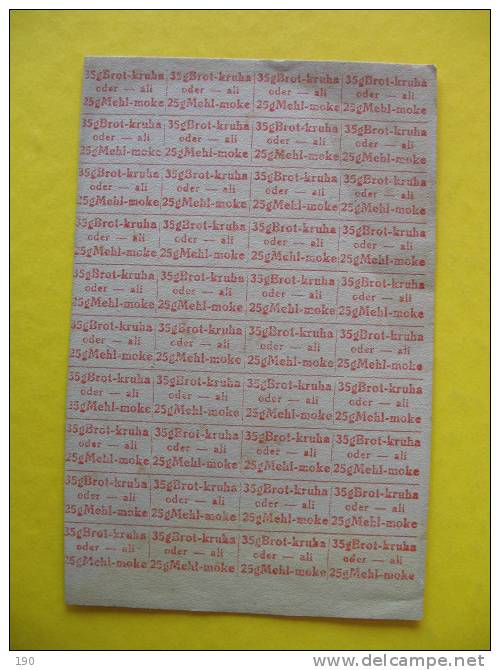 35gBrot-kruha 35gBrot-kruha 35gBrot-kruha 35gBrot-kruha
oder — ali oder — ali oder — ali oder — ali
25gMehl-moke 25gMehl-moke 25gMehl-moke 25gMehl-moke
35gBrot-kruha 35gBrot-kruha 35gBrot-kruha 35gBrot-kruha
oder — ali oder — ali oder — ali oder — ali
25gMehl-moke 25gMehl-moke 25gMehl-moke 25gMehl-moke
35gBrot-kruha 35gBrot-kruha 35gBrot-kruha 35gBrot-kruha
oder — ali oder — ali oder — ali oder — ali
25gMehl-moke 25gMehl-moke 25gMehl-moke 25gMehl-moke
35gBrot-kruha 35gBrot-kruha 35gBrot-kruha 35gBrot-kruha
oder — ali oder — ali oder — ali oder — ali
25gMehl-moke 25gMehl-moke 25gMehl-moke 25gMehl-moke
35gBrot-kruha 35gBrot-kruha 35gBrot-kruha 35gBrot-kruha
oder — ali oder — ali oder — ali oder — ali
25gMehl-moke 25gMehl-moke 25gMehl-moke 25gMehl-moke
35gBrot-kruha 35gBrot-kruha 35gBrot-kruha 35gBrot-kruha
oder — ali oder — ali oder — ali oder — ali
25gMehl-moke 25gMehl-moke 25gMehl-moke 25gMehl-moke
35gBrot-kruha 35gBrot-kruha 35gBrot-kruha 35gBrot-kruha
oder — ali oder — ali oder — ali oder — ali
25gMehl-moke 25gMehl-moke 25gMehl-moke 25gMehl-moke
35gBrot-kruha 35gBrot-kruha 35gBrot-kruha 35gBrot-kruha
oder — ali oder — ali oder — ali oder — ali
25gMehl-moke 25gMehl-moke 25gMehl-moke 25gMehl-moke
35gBrot-kruha 35gBrot-kruha 35gBrot-kruha 35gBrot-kruha
oder — ali oder — ali oder — ali oder — ali
25gMehl-moke 25gMehl-moke 25gMehl-moke 25gMehl-moke
35gBrot-kruha 35gBrot-kruha 35gBrot-kruha 35gBrot-kruha
oder — ali oder — ali oder — ali oder — ali
25gMehl-moke 25gMehl-moke 25gMehl-moke 25gMehl-moke
190
http://www.delcampe.net